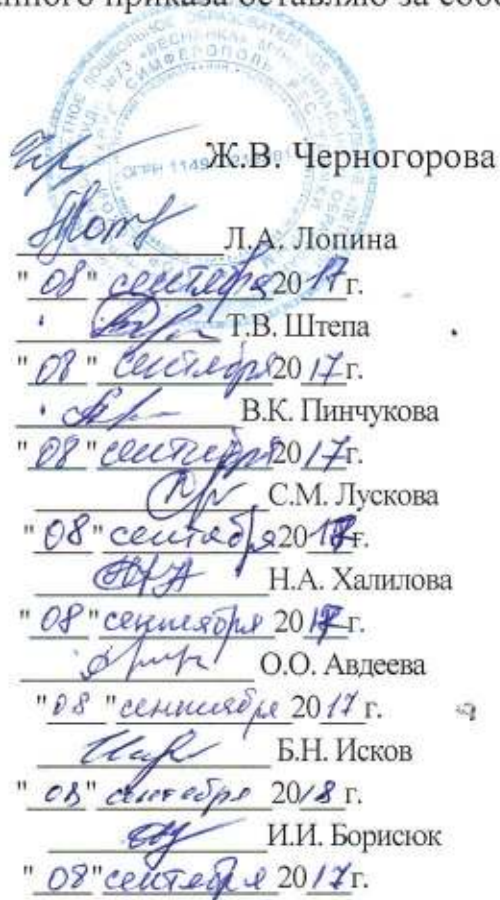 нного приказа оставляю за собо
Ж.В. Черногорова
Л.А. Лопина
"08" сентября 2017г.
Т.В. Штепа
"08" сентября 2017г.
В.К. Пинчукова
"08" сентября 2017г.
С.М. Лускова
"08" сентября 2017г.
Н.А. Халилова
"08" сентября 2017г.
О.О. Авдеева
"08" сентября 2017 г.
Б.Н. Исков
"08" сентября 2018 г.
И.И. Борисюк
"08" сентября 2017г.